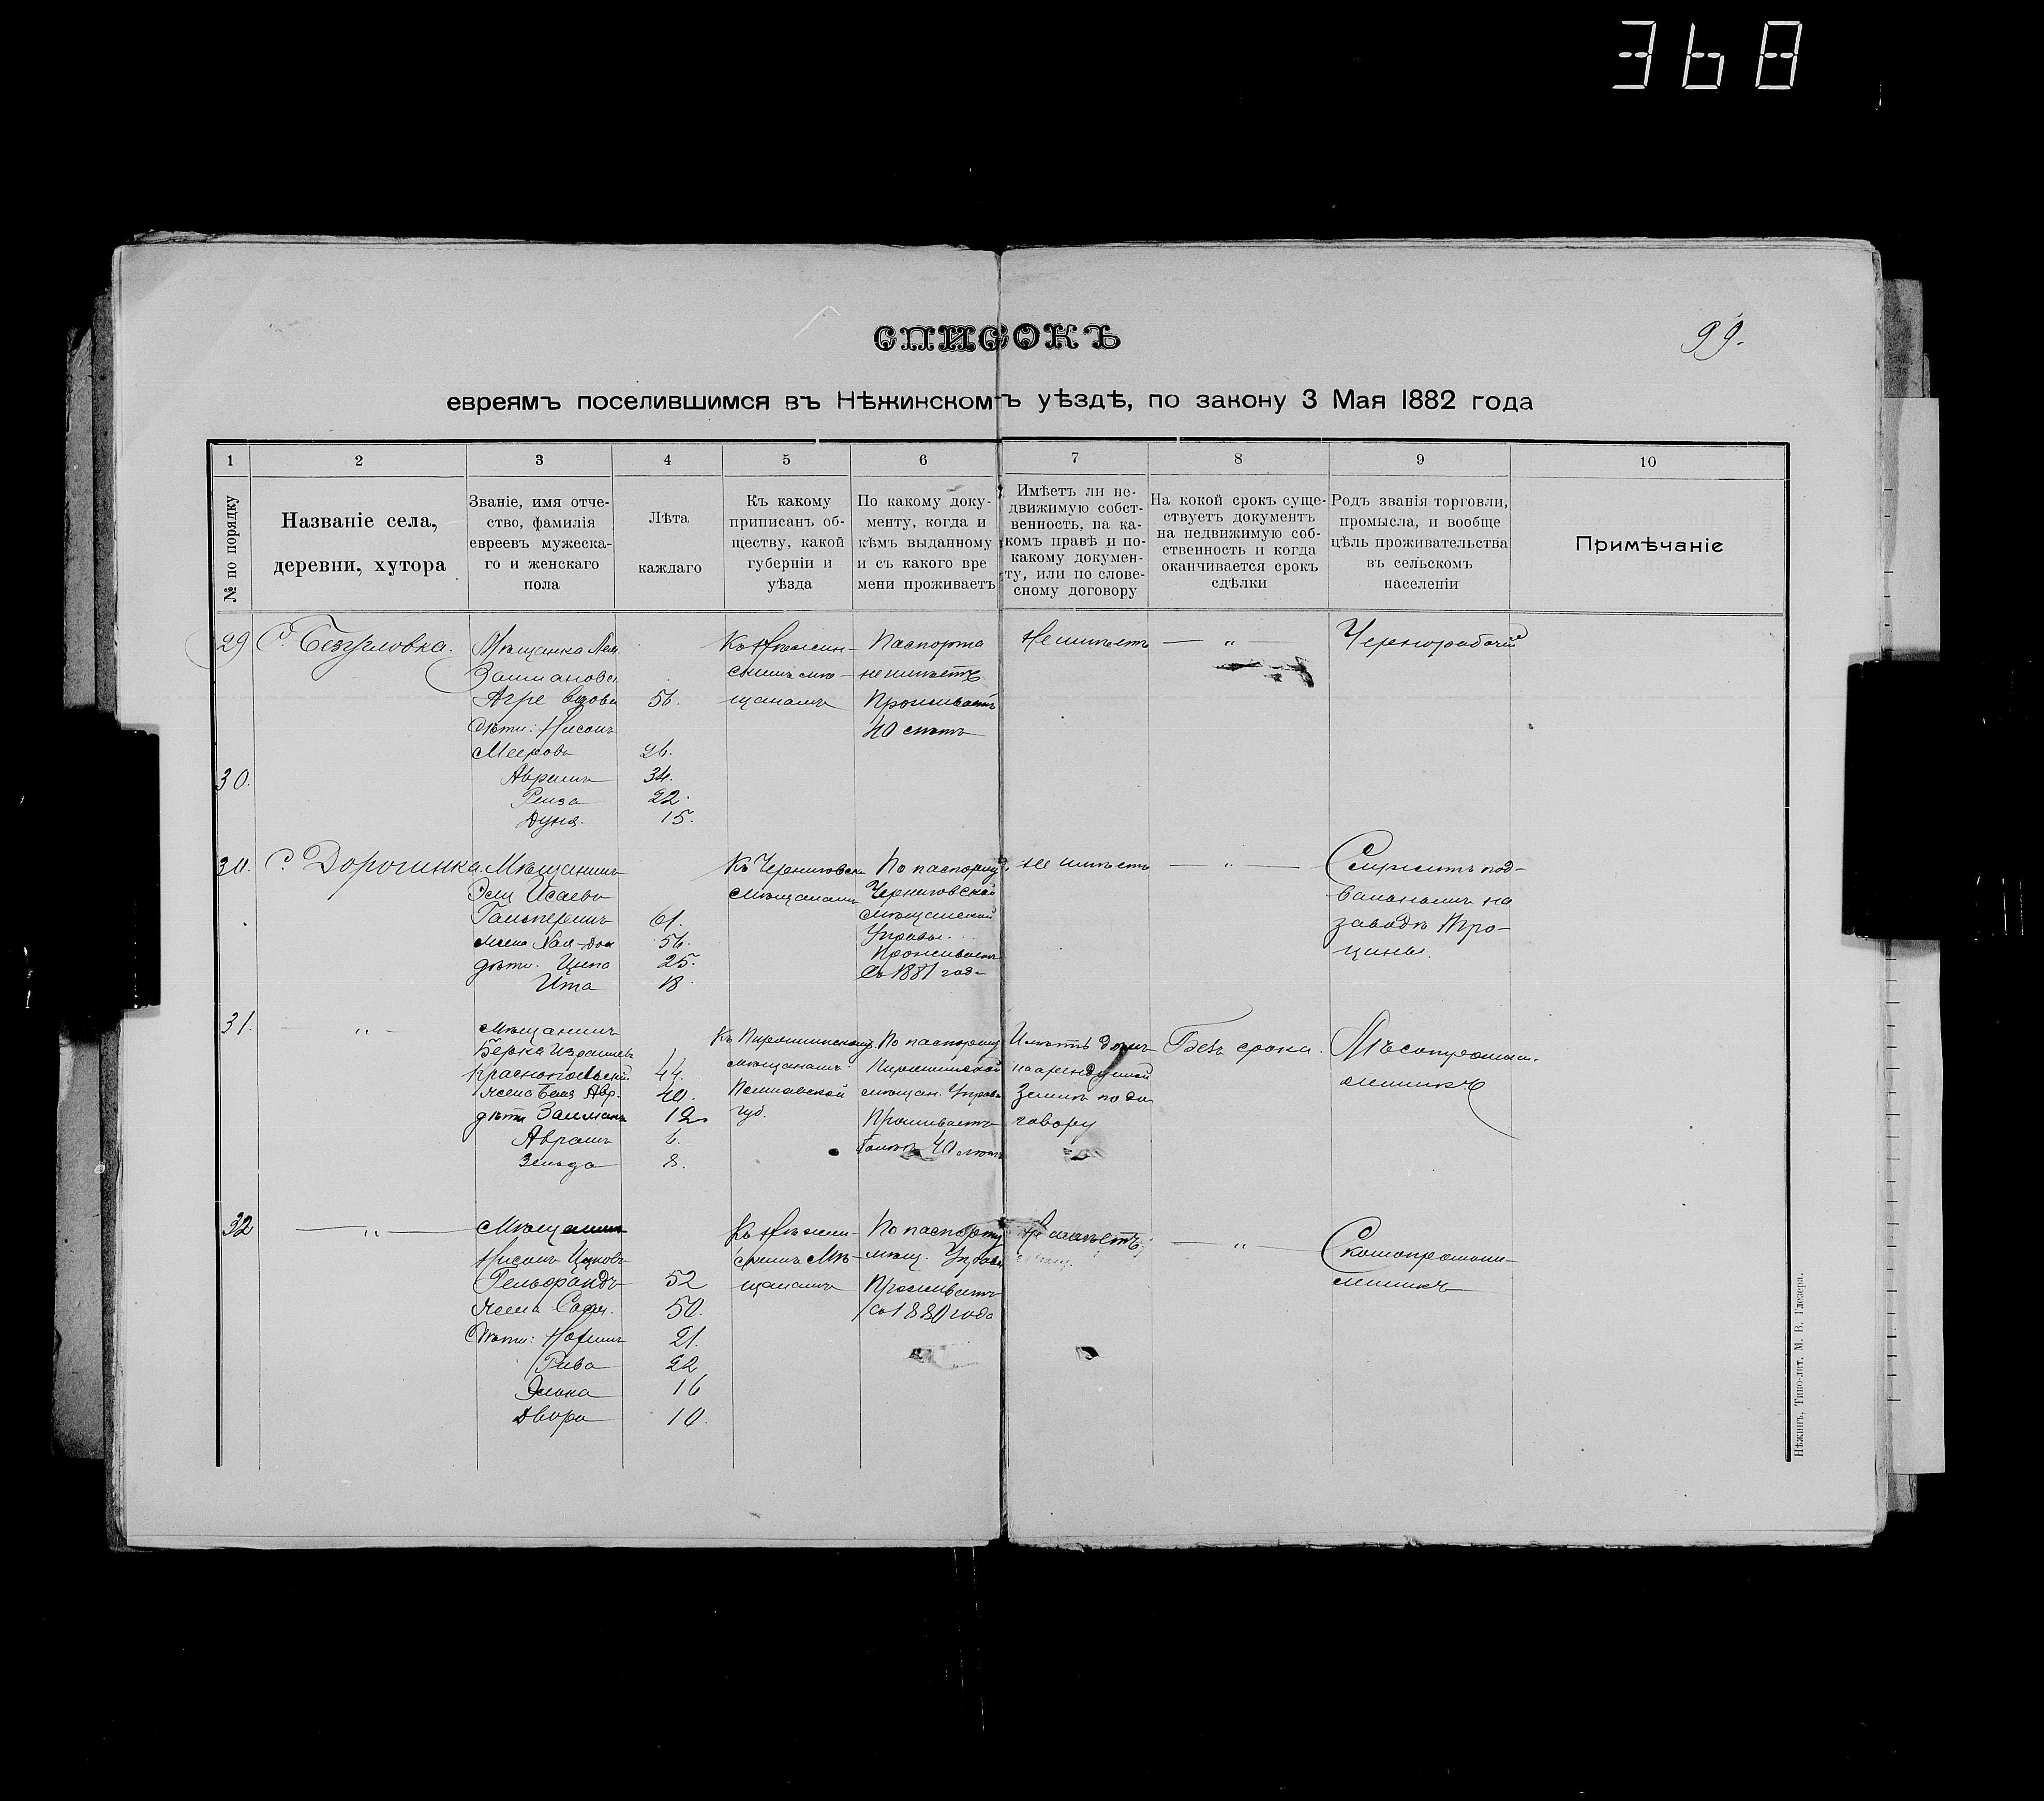 368
99.
СПИСОКЪ
евреямъ поселившимся въ Нѣжинскомъ уѣздѣ, по закону 3 Мая 1882 года
1 2 3 4 5 6 7 8 9 10
№ по порядку
Названіе села,
деревни, хутора
Званіе, имя отче-
ство, фамилія
евреевъ мужеска-
го и женскаго
пола
Лѣта
каждаго
Къ какому
приписанъ об-
ществу, какой
губерніи и
уѣзда
По какому доку-
менту, когда и
кѣмъ выданному
и съ какого вре
мени проживаетъ
Имѣетъ ли не-
движимую собст-
венность, на ка-
комъ правѣ и по-
какому докумен-
ту, или по слове-
сному договору
На кокой срокъ суще-
ствуетъ документъ
на недвижимую соб-
ственность и когда
оканчивается срокъ
сдѣлки
Родъ званія торговли,
промысла, и вообще
цѣль проживательства
въ сельскомъ
населеніи
Примѣчаніе
29
С. Безугловка.
Мѣщанка
Залманова
Агре вдова 56.
Дѣти: Нисонъ
Мееровъ 26.
30.
Аврамъ 34.
Рейза 22.
Дуня. 15.
Къ Нѣжин-
скимъ мѣ-
щанамъ
Паспорта
неимѣетъ
Проживаетъ
40 лѣтъ
Не имѣетъ
— „ —
Чернорабочій
30.
С. Дорогинка.
Мѣщанинъ
Исаевъ
Гальперинъ 61.
жена 56.
дѣти. Ципа 25.
Ита 18.
Къ Черниговск
Мѣщанамъ
По паспорту
Черниговской
мѣщанской
Управы.
Проживаетъ
Съ 1881 год
не имѣетъ
— „ —
Служитъ под-
вальнымъ на
заводѣ Тро-
цины.
31.
— „ —
Мѣщанинъ
Берка Израилевъ
Краснопольскій 44.
Жена Бейля Авр. 40.
дѣти Залманъ 12
Аврамъ 6.
Зельда 8.
Къ Пирятинскому
мѣщанамъ
Полтавской
губ.
По паспорту
Пирятинской
мѣщан. Управы
Проживаетъ
болѣе 40 лѣтъ
Имѣетъ домъ
на арендуемой
Землѣ по до
говору
Безъ срока.
Мѣсопромыш-
ленникъ
32
— „ —
Мѣщанинъ
Нисонъ
Гельфандъ 52
Жена 50.
Дѣти: 21.
Рива 22
Элька 16
Двора 10.
Къ Нѣжин-
скимъ Мѣ-
щанамъ
По паспорту
мѣщ. Управы
Проживаетъ
Со 1880 года
Не имѣетъ
— „ —
Скотопромыш-
ленникъ
Нѣжинъ, Типо-лит. М. В. Глезера.